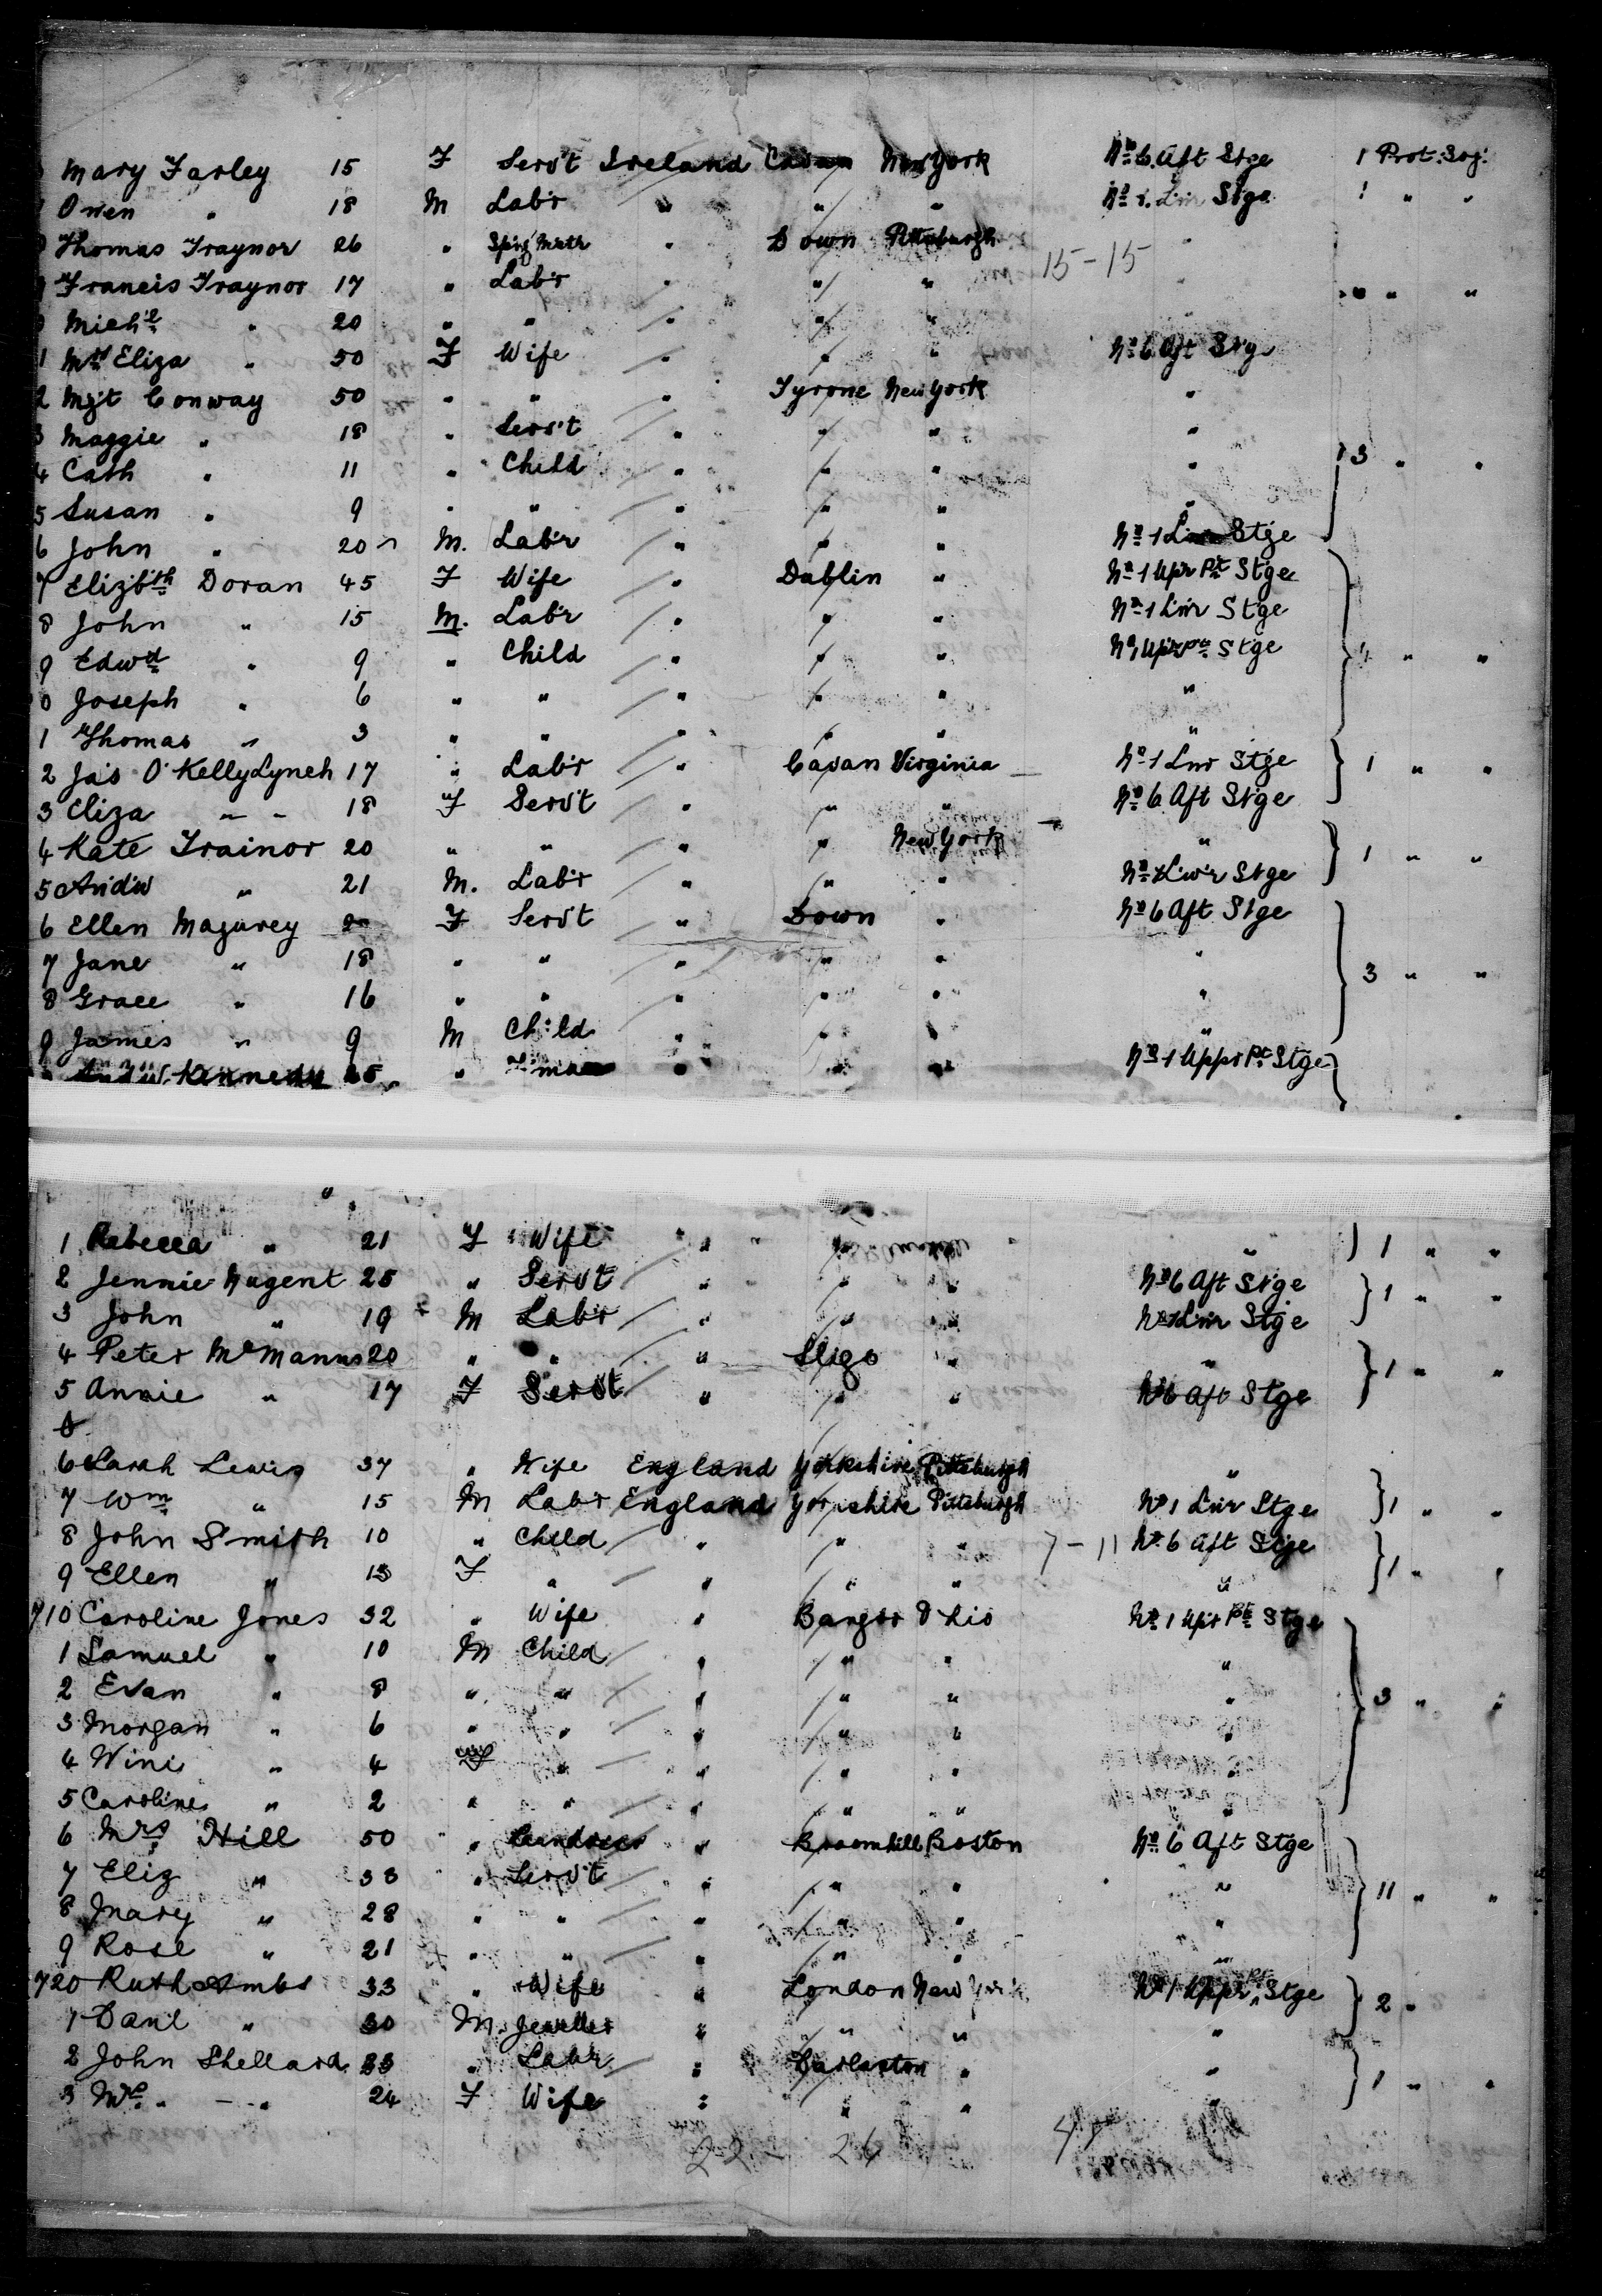 Mary Farley 15 F Serv't Ireland Cavan New York No 6 Aft Stge 1 Prot. Soj.
Owen " 18 M Lab'r " " " No 1 Lwr Stge 1 " "
Thomas Traynor 26 " " Down Pittsburgh "
15-15
Francis Traynor 17 " Lab'r " " " " " "
Michl " 20 " " " " "
1 Mrs Eliza " 50 F Wife " " " No 6 Aft Stge
2 Mgt Conway 50 " " " Tyrone New York "
3 Maggie " 18 " Serv't " " " "
4 Cath " 11 " Child " " " " 3 " "
5 Susan " 9 " " " " " "
6 John " 20 M. Lab'r " " " No 1 Lwr Stge
7 Elizbth Doran 45 F Wife " Dublin " No 1 Upr Pt Stge
8 John " 15 M. Lab'r " " " No 1 Lwr Stge
9 Edwd " 9 " Child " " " No 1 Upr Pt Stge 4 " "
0 Joseph " 6 " " " " " "
1 Thomas " 3 " " " " " "
2 Jas O'Kelly Lynch 17 " Lab'r " Cavan Virginia No 1 Lwr Stge 1 " "
3 Eliza " " 18 F Serv't " " " No 6 Aft Stge
4 Kate Trainor 20 " " " " New York " 1 " "
5 And'w " 21 M. Lab'r " " " No 1 Lw'r Stge
6 Ellen Magurey 20 F Serv't " Down " No 6 Aft Stge
7 Jane " 18 " " " " " " 3 " "
8 Grace " 16 " " " " " "
9 James " 9 M Child " " " "
And'w. Kennedy 25 " " " " No 1 Uppr Pt Stge
1 Rebecca " 21 F Wife " " " 1 " "
2 Jennie Nugent 25 " Serv't " " " No 6 Aft Stge 1 " "
3 John " 19 M Lab'r " " " No 1 Lwr Stge
4 Peter McManus 20 " " " Sligo " " 1 " "
5 Annie " 17 F Serv't " " " No 6 Aft Stge
6 Sarah Lewis 37 " Wife England Yorkshire Pittsburgh "
7 Wm " 15 M Lab'r England Yorkshire Pittsburgh No 1 Lwr Stge 1 " "
8 John Smith 10 " Child " " " 7-11 No 6 Aft Stge 1 " "
9 Ellen " 13 F " " " " "
710 Caroline Jones 32 " Wife " Bangor Ohio No 1 Upr Pt Stge
1 Samuel " 10 M Child " " " "
2 Evan " 8 " " " " " " 3 " "
3 Morgan " 6 " " " " " "
4 Wini " 4 F " " " " "
5 Caroline " 2 " " " " " "
6 Mrs Hill 50 " Laundress " Broomhill Boston No 6 Aft Stge
7 Eliz " 33 " Serv't " " " " 11 " "
8 Mary " 28 " " " " " "
9 Rose " 21 " " " " " "
720 Ruth Ambs 33 " Wife " London New York No 1 Uppr Pt Stge 2 "
1 Danl " 30 M. Jeweller " " " "
2 John Shellard 33 " Lab'r " Darlaston " " 1 " "
3 Mrs " 24 F Wife " " "
22 - 26